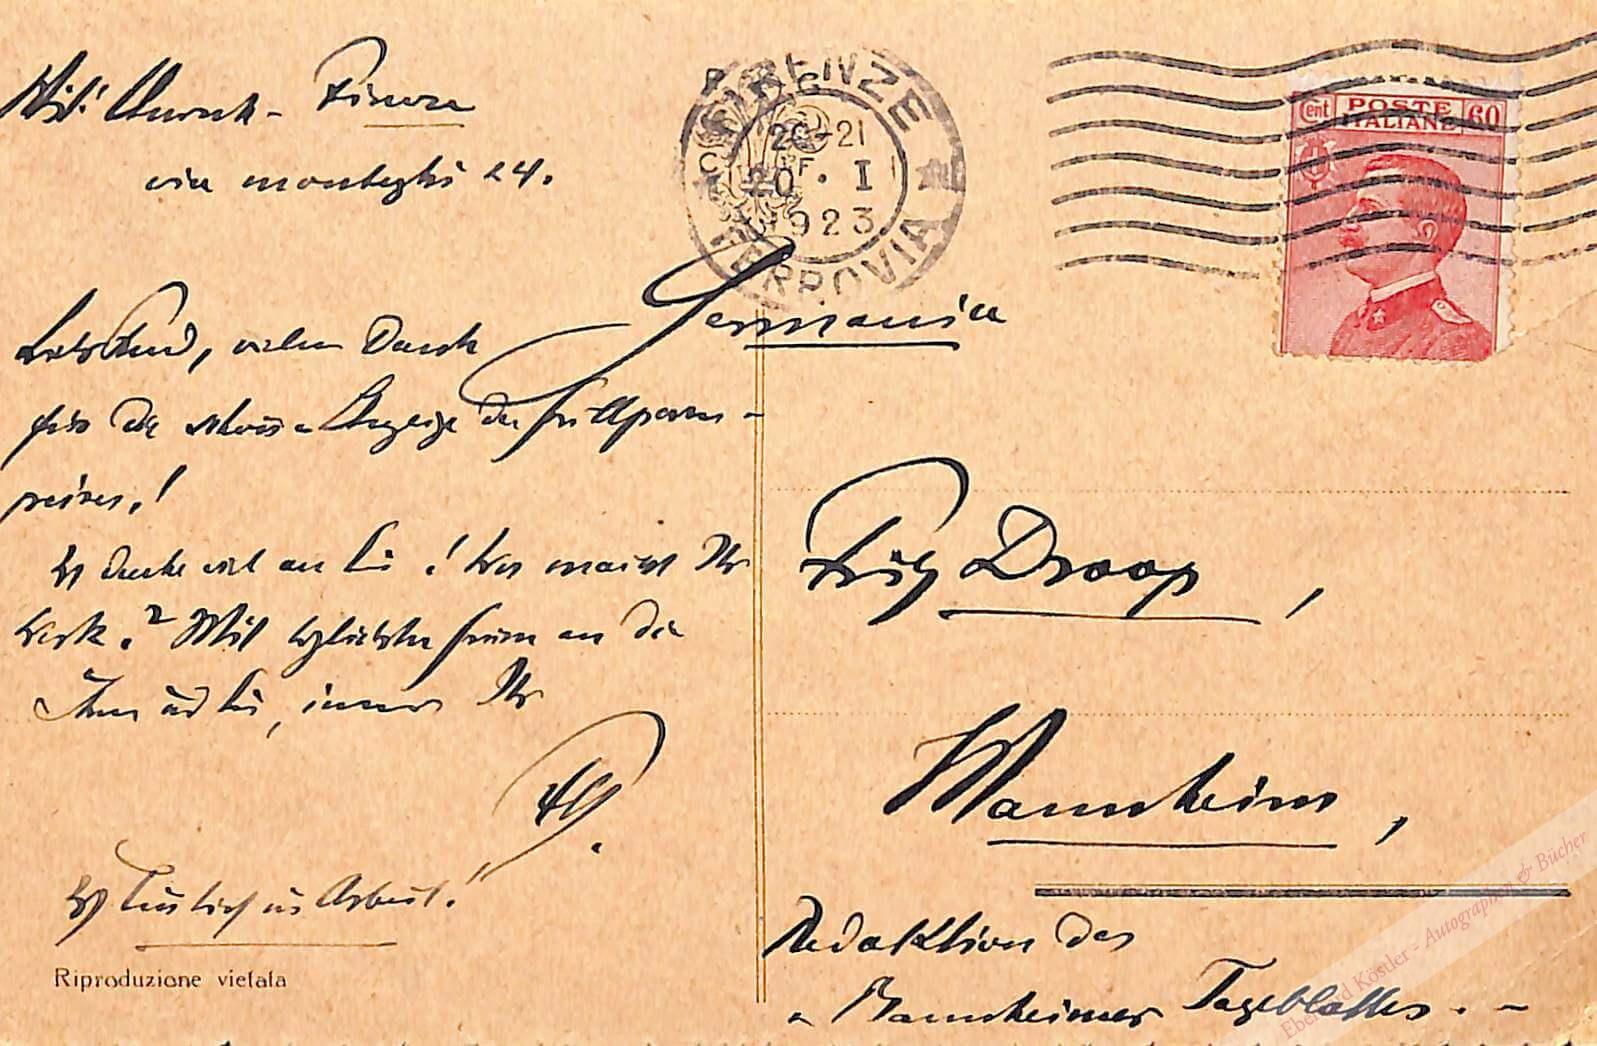 Firenze
via montughi 24.
FIRENZE
20-21
20 . I
1923
FERROVIA
Cent POSTE ITALIANE 60
Germania
vielen Dank
für die Anzeige des Grillparzer-
preises!
Ich denke viel an Sie! Was macht Ihr
Werk? Mit herzlichsten Grüssen an die
Ihren und Sie, immer Ihr
Ich tief in Arbeit!
Riproduzione vietata
Fritz Droop,
Mannheim,
Redaktion des
„Mannheimer Tageblattes". -
Eberhard Köstler - Autographen & Bücher